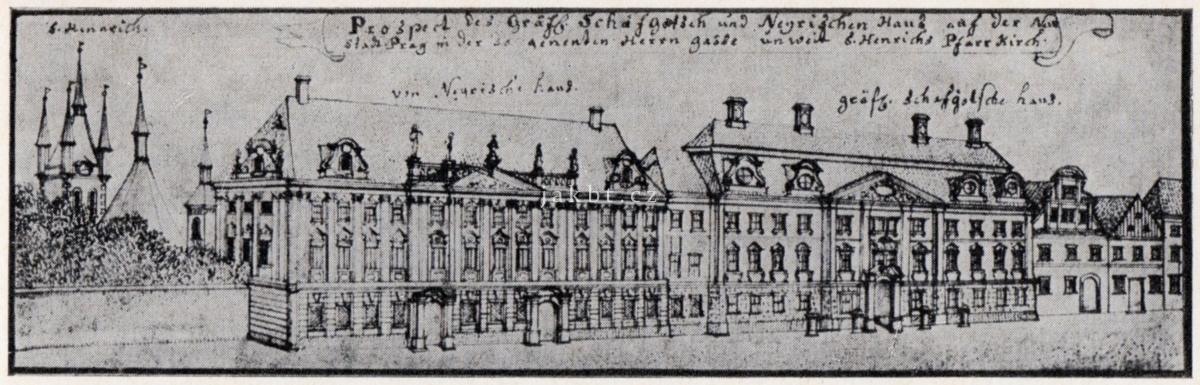 S. Heinrich.
Prospect des Gräff. Schafgotsch und Neyrischen Haus auf der Neu
stadt Prag in der so genenten Herrn gasse unweit S. Henrichs Pfarr Kirch.
von Neyrische haus.
gräff. Schafgotsche haus.
jakbr.cz